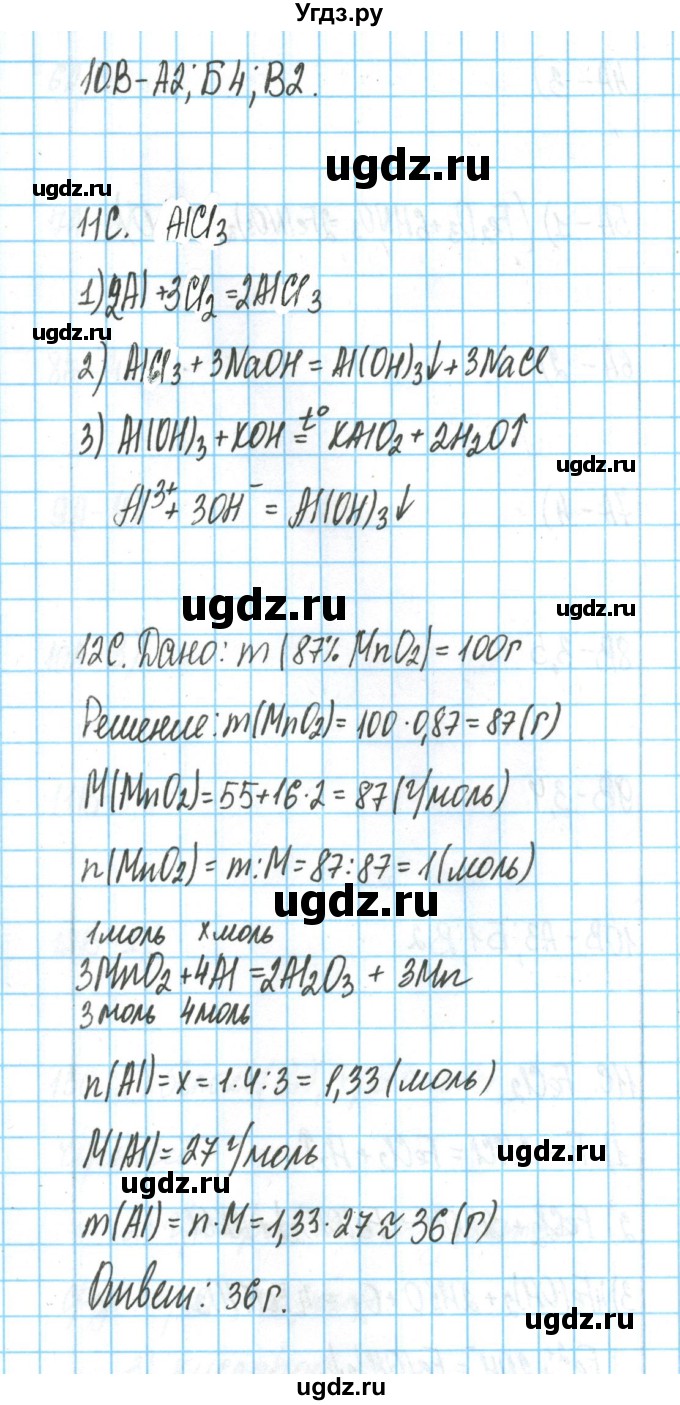 Угдз.ру
10В-А2; Б4; В2.
ugdz.ru
ugdz.ru
11С. AlCl₃
1) 2Al + 3Cl₂ = 2AlCl₃
ugdz.ru
2) AlCl₃ + 3NaOH = Al(OH)₃↓ + 3NaCl
3) Al(OH)₃ + KOH =ᵗ° KAlO₂ + 2H₂O↑
ugdz.ru
Al³⁺ + 3OH⁻ = Al(OH)₃↓
ugdz.ru
ugdz.ru
12С. Дано: m (87% MnO₂) = 100г
Решение: m(MnO₂) = 100 · 0,87 = 87 (г)
M(MnO₂) = 55+16·2 = 87 (г/моль)
n(MnO₂) = m:M = 87:87 = 1 (моль)
ugdz.ru
1 моль x моль
3MnO₂ + 4Al = 2Al₂O₃ + 3Mn
3 моль 4 моль
n(Al) = x = 1·4:3 = 1,33 (моль)
M(Al) = 27 г/моль
ugdz.ru
ugdz.ru
m(Al) = n·M = 1,33·27 ≈ 36 (г)
Ответ: 36г.
ugdz.ru
ugdz.ru